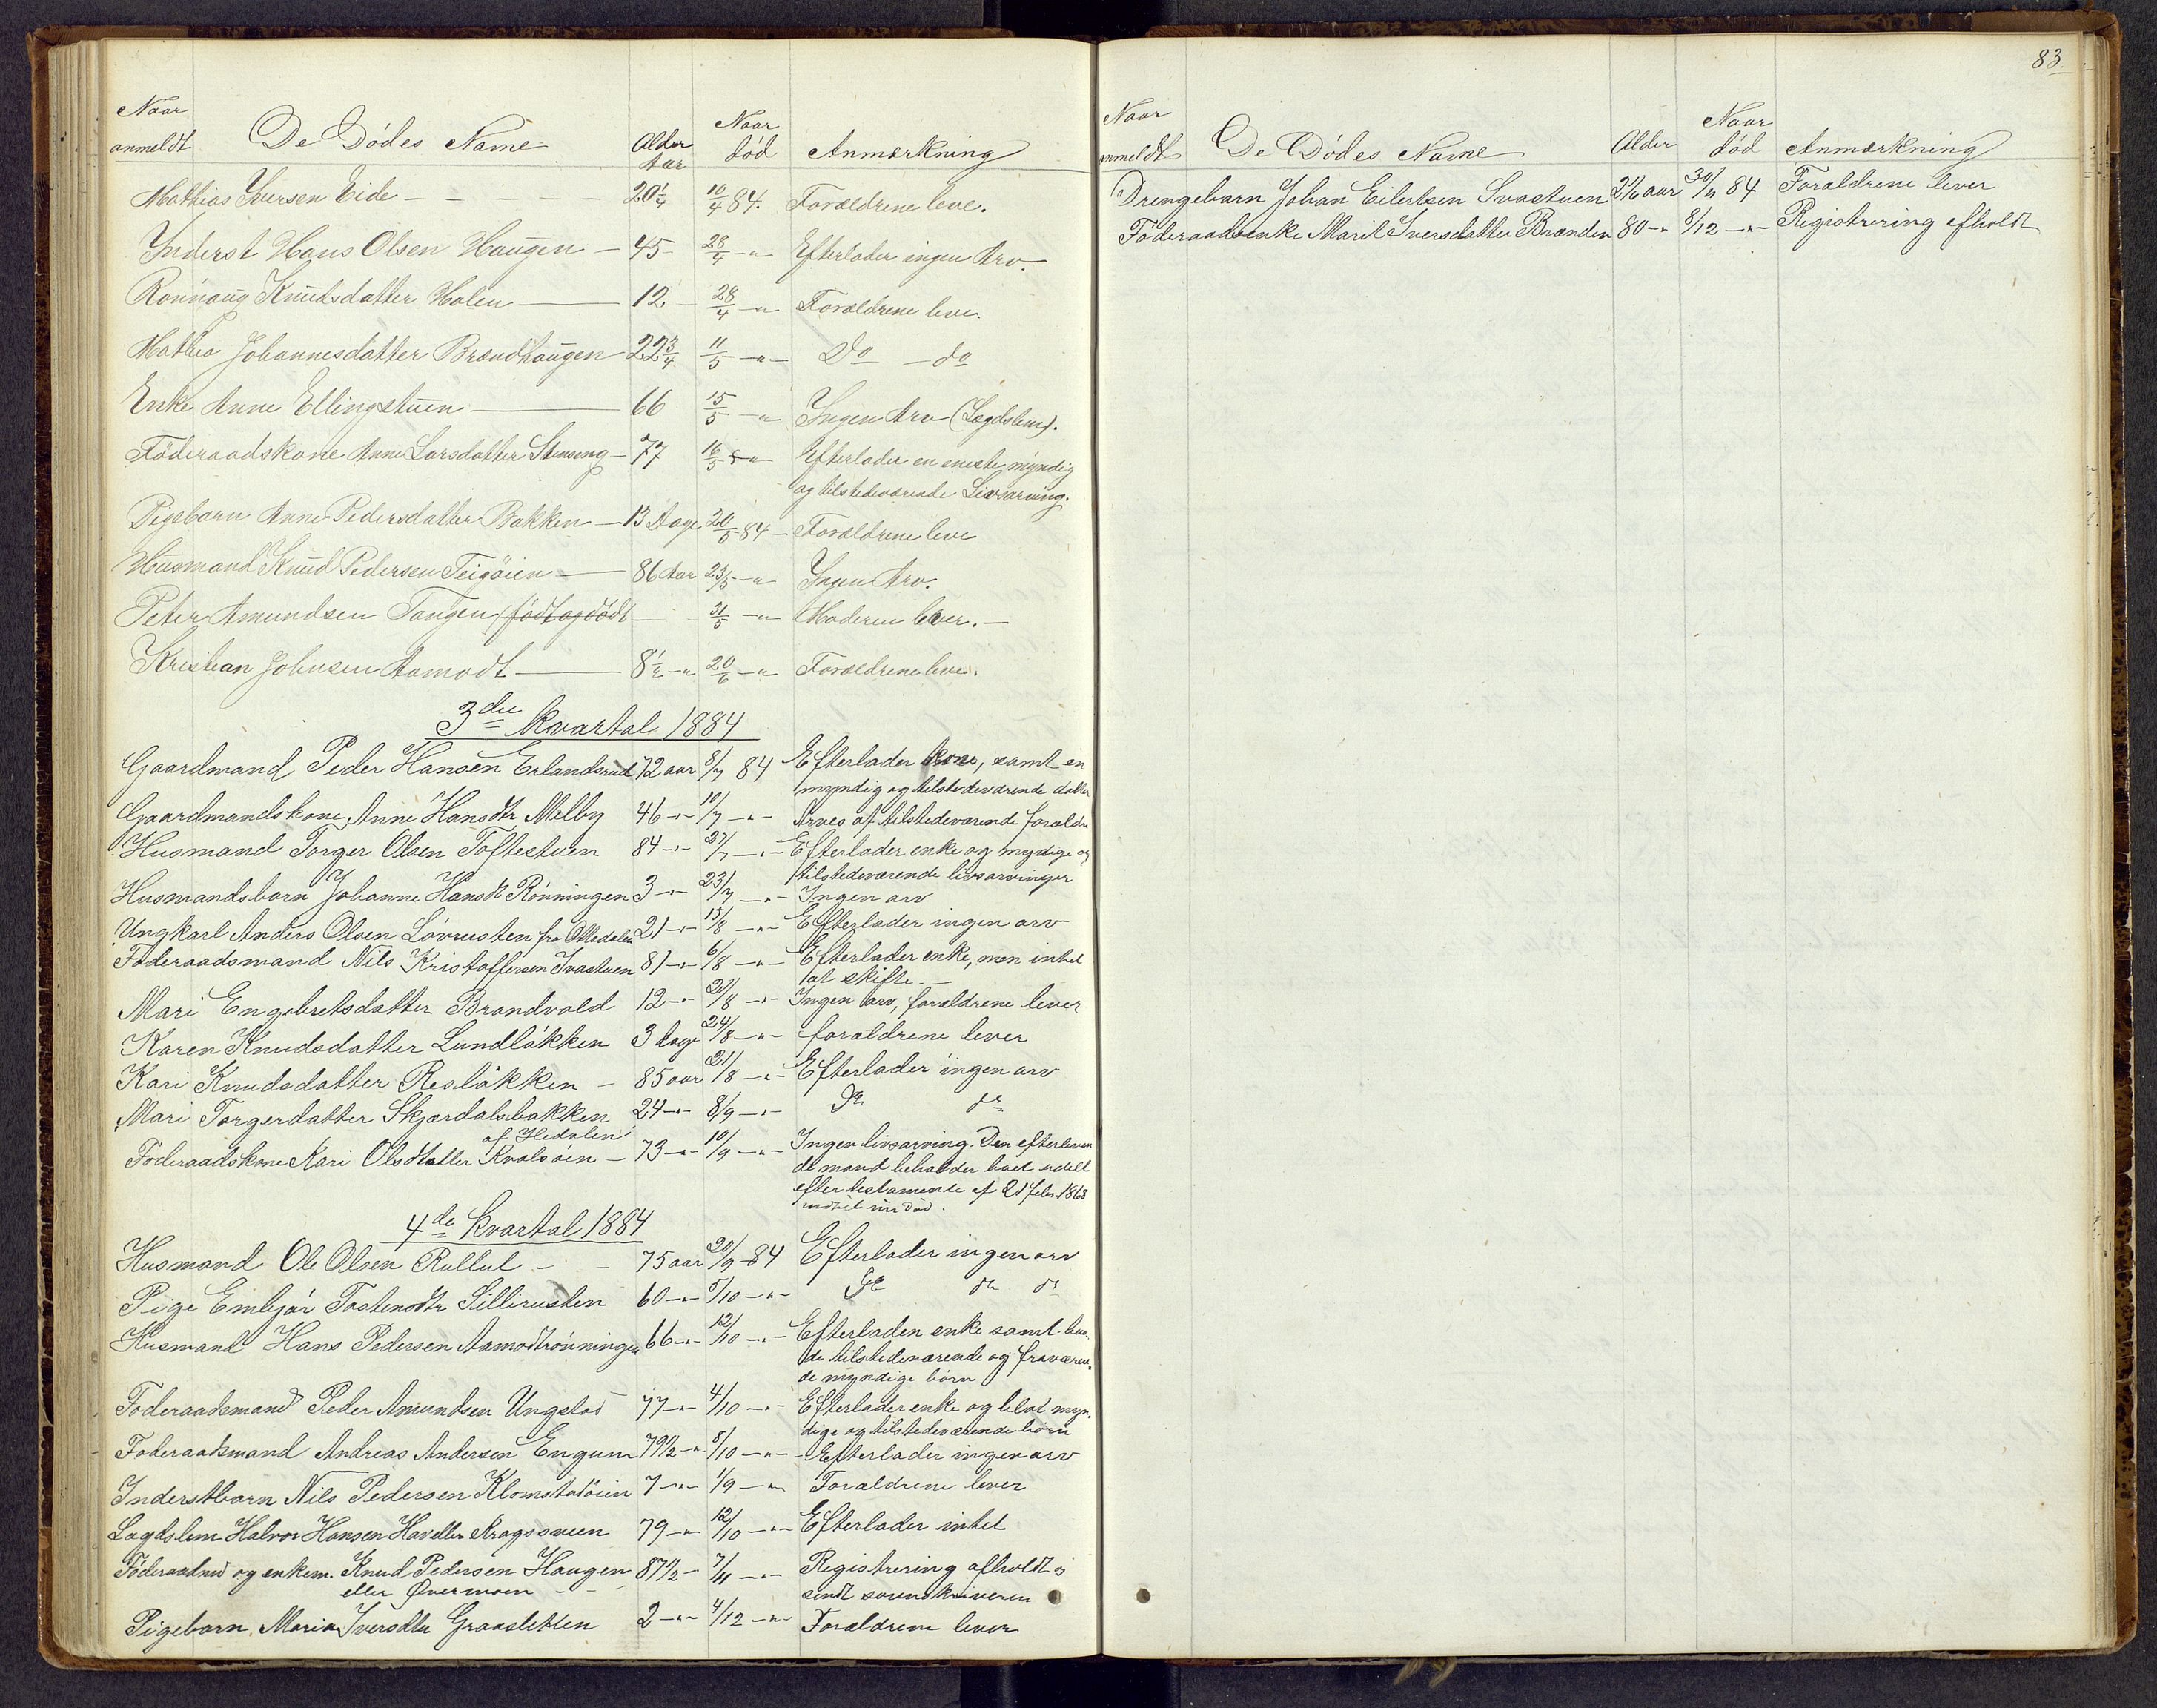 Naar
anmeldt De Dödes Navne Alder Aar Naar död Anmærkning
Mathias Iversen Eide - - - - - 20 1/4 10/4 84. Forældrene leve.
Inderst Hans Olsen Haugen - 45 - 28/4 -"- Efterlader ingen Arv.
Rønnaug Knudsdatter Holen - 12 - 28/4 -"- Forældrene leve.
Mathea Johannesdatter Brændhaugen 22 3/4 11/5 -"- Do - do
Enke Anne Ellingstuen - 66 15/5 -"- Ingen Arv (Lægdslem).
Föderaadskone Anne Larsdatter Stenseng - 77 16/5 -"- Efterlader en eneste myndig
og tilstedeværende Livsarving.
Pigebarn Anne Pedersdatter Bakken - 13 Dage 20/5 84 - Forældrene leve
Husmand Knud Pedersen Teigöien - 86 Aar 23/5 -"- Ingen Arv.
Peter Amundsen Tangen, födt og död - 31/5 -"- Moderen lever. -
Kristian Johnsen Aamodt - 8 1/2 -"- 20/6 -"- Forældrene leve.
3die kvartal 1884
Gaardmand Peder Hansen Erlandsrud 72 aar 8/7 84 Efterlader kone, samt en
myndig og tilstedeværende datter
Gaardmandskone Anne Hansdtr Melby 46 -"- 10/7 -"- Arves af tilstedeværende forældre
Husmand Torger Olsen Toftestuen 84 -"- 27/7 -"- Efterlader enke og myndige og
tilstedeværende livsarvinger
Husmandsbarn Johanne Hansdt Rönningen 3 -"- 23/7 -"- Ingen arv
Ungkarl Anders Olsen Lövrusten fra 21 -"- 15/8 -"- Efterlader ingen arv
Föderaadsmand Nils Kristoffersen Svastuen 81 -"- 6/8 -"- Efterlader enke, men intet
at skifte. -
Mari Engebretsdatter Brandvold 12 -"- 21/8 -"- Ingen arv, forældrene lever
Karen Knudsdatter Lundløkken 3 dage 24/8 -"- forældrene lever
Kari Knudsdatter Resløkken - 85 aar 21/8 -"- Efterlader ingen arv
Mari Torgersdatter Skjærdalsbakken 24 -"- 8/9 -"- Do do
af Hedalen
Föderaadskone Kari Olsdatter Kvalsöien - 73 -"- 10/9 -"- Ingen livsarving. Den efterleven
de mand beholder boet udelt
efter testamente af 21 febr. 1868
4de kvartal 1884
Husmand Ole Olsen Rullut - - 75 aar 20/9 84 Efterlader ingen arv
Pige Embjør Tostensdtr Sillirusten 60 -"- 5/10 -"- Do do do
Husmand Hans Pedersen Aamodtrønningen 66 -"- 12/10 -"- Efterladen enke samt baa-
de tilstedeværende og fraværen-
de myndige börn
Föderaadsmand Peder Amundsen Ungstad 77 -"- 4/10 -"- Efterlader enke og blot myn-
dige og tilstedeværende börn
Föderaadsmand Andreas Andersen Engum 79 1/2 -"- 8/10 -"- Efterlader ingen arv
Inderstbarn Nils Pedersen Klomstadöien 7 -"- 1/9 -"- Forældrene lever
Lægdslem Halvor Hansen Haveller Kragsveen 79 -"- 12/10 -"- Efterlader intet
Föderaadmd og enkem. Knud Pedersen Haugen 87 1/2 - 7/11 -"- Registrering afholdt og
eller Övermoen - - sendt sorenskriveren
Pigebarn Maria Iversdtr Graasletten 2 -"- 4/12 -"- Forældrene lever
83.
Naar
anmeldt De Dödes Navne Alder Naar död Anmærkning
Drengebarn Johan Eilertsen Svastuen 2 1/6 aar 30/11 84 Forældrene lever
Föderaadsenke Marit Iversdatter Brænden 80 -"- 8/12 -"- Registrering afholdt